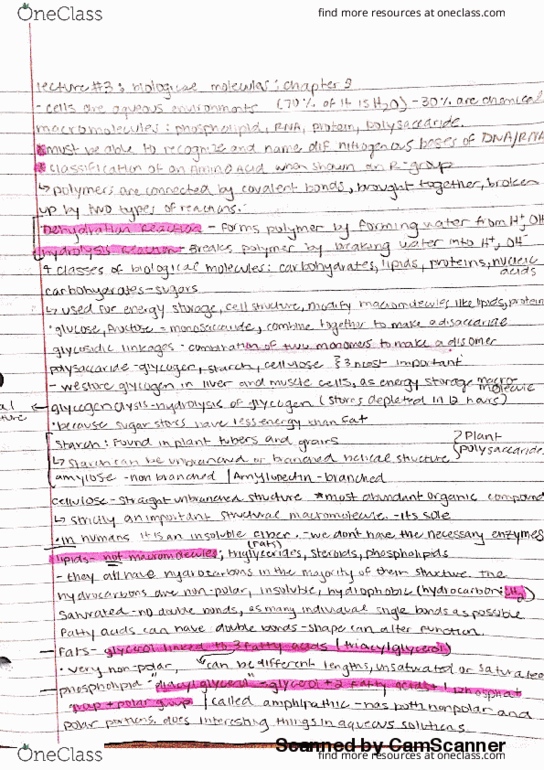 OneClass
find more resources at oneclass.com
lecture #3: biological molecules: chapter 2
- cells are aqueous environments (70% of it is H2O) - 30% are chemical
macromolecules: phospholipid, RNA, protein, polysaccaride.
*must be able to recognize and name dif nitrogenous bases of DNA/RNA
*classification of an Amino Acid when shown an R-group
↳ polymers are connected by covalent bonds, brought together, broken
up by two types of reactions:
Dehydration reaction - forms polymer by forming water from H+, OH-
hydrolysis reaction - Breaks polymer by breaking water into H+, OH-
4 classes of biological molecules: carbohydrates, lipids, proteins, nucleic acids
carbohydrates - sugars
↳ used for energy storage, cell structure, modify macromolecules like lipids, protein
• glucose, fructose - monosaccaride, combine together to make a disaccaride
glycosidic linkages - combination of two monomers to make a dimer
polysaccaride - glycogen, starch, cellulose } 3 most important
- we store glycogen in liver and muscle cells, as energy storage macromolecule
glycogenolysis - hydrolysis of glycogen (stores depleted in 12 hours)
• because sugar stars have less energy than fat
Starch: Found in plant tubers and grains
} Plant polysaccaride
↳ starch can be unbranched or branched helical structure
amylose - non branched / Amylopectin - branched
cellulose - straight unbranched structure *most abundant organic compound
↳ strictly an important structural macromolecule. - its sole
• in humans it is an insoluble fiber. - we dont have the necessary enzymes
(fats)
lipids - not macromolecules; triglycerides, steroids, phospholipids
- they all have hydrocarbons in the majority of their structure. The
hydrocarbons are non-polar, insoluble, hydrophobic (hydrocarbon:
Saturated - no double bonds, as many individual single bonds as possible
Fatty acids can have double bonds - shape can alter function.
- Fats - glycerol linked to 3 fatty acids (triacylglycerol)
• very non-polar, can be different lengths, unsaturated or saturated
- phospholipid "diacylglycerol" - glycerol + 2 fatty acids + 1 phosphate
group + polar group | called amphipathic - has both nonpolar and
polar portions, does interesting things in aqueous solutions.
Scanned by CamScanner
OneClass
find more resources at oneclass.com